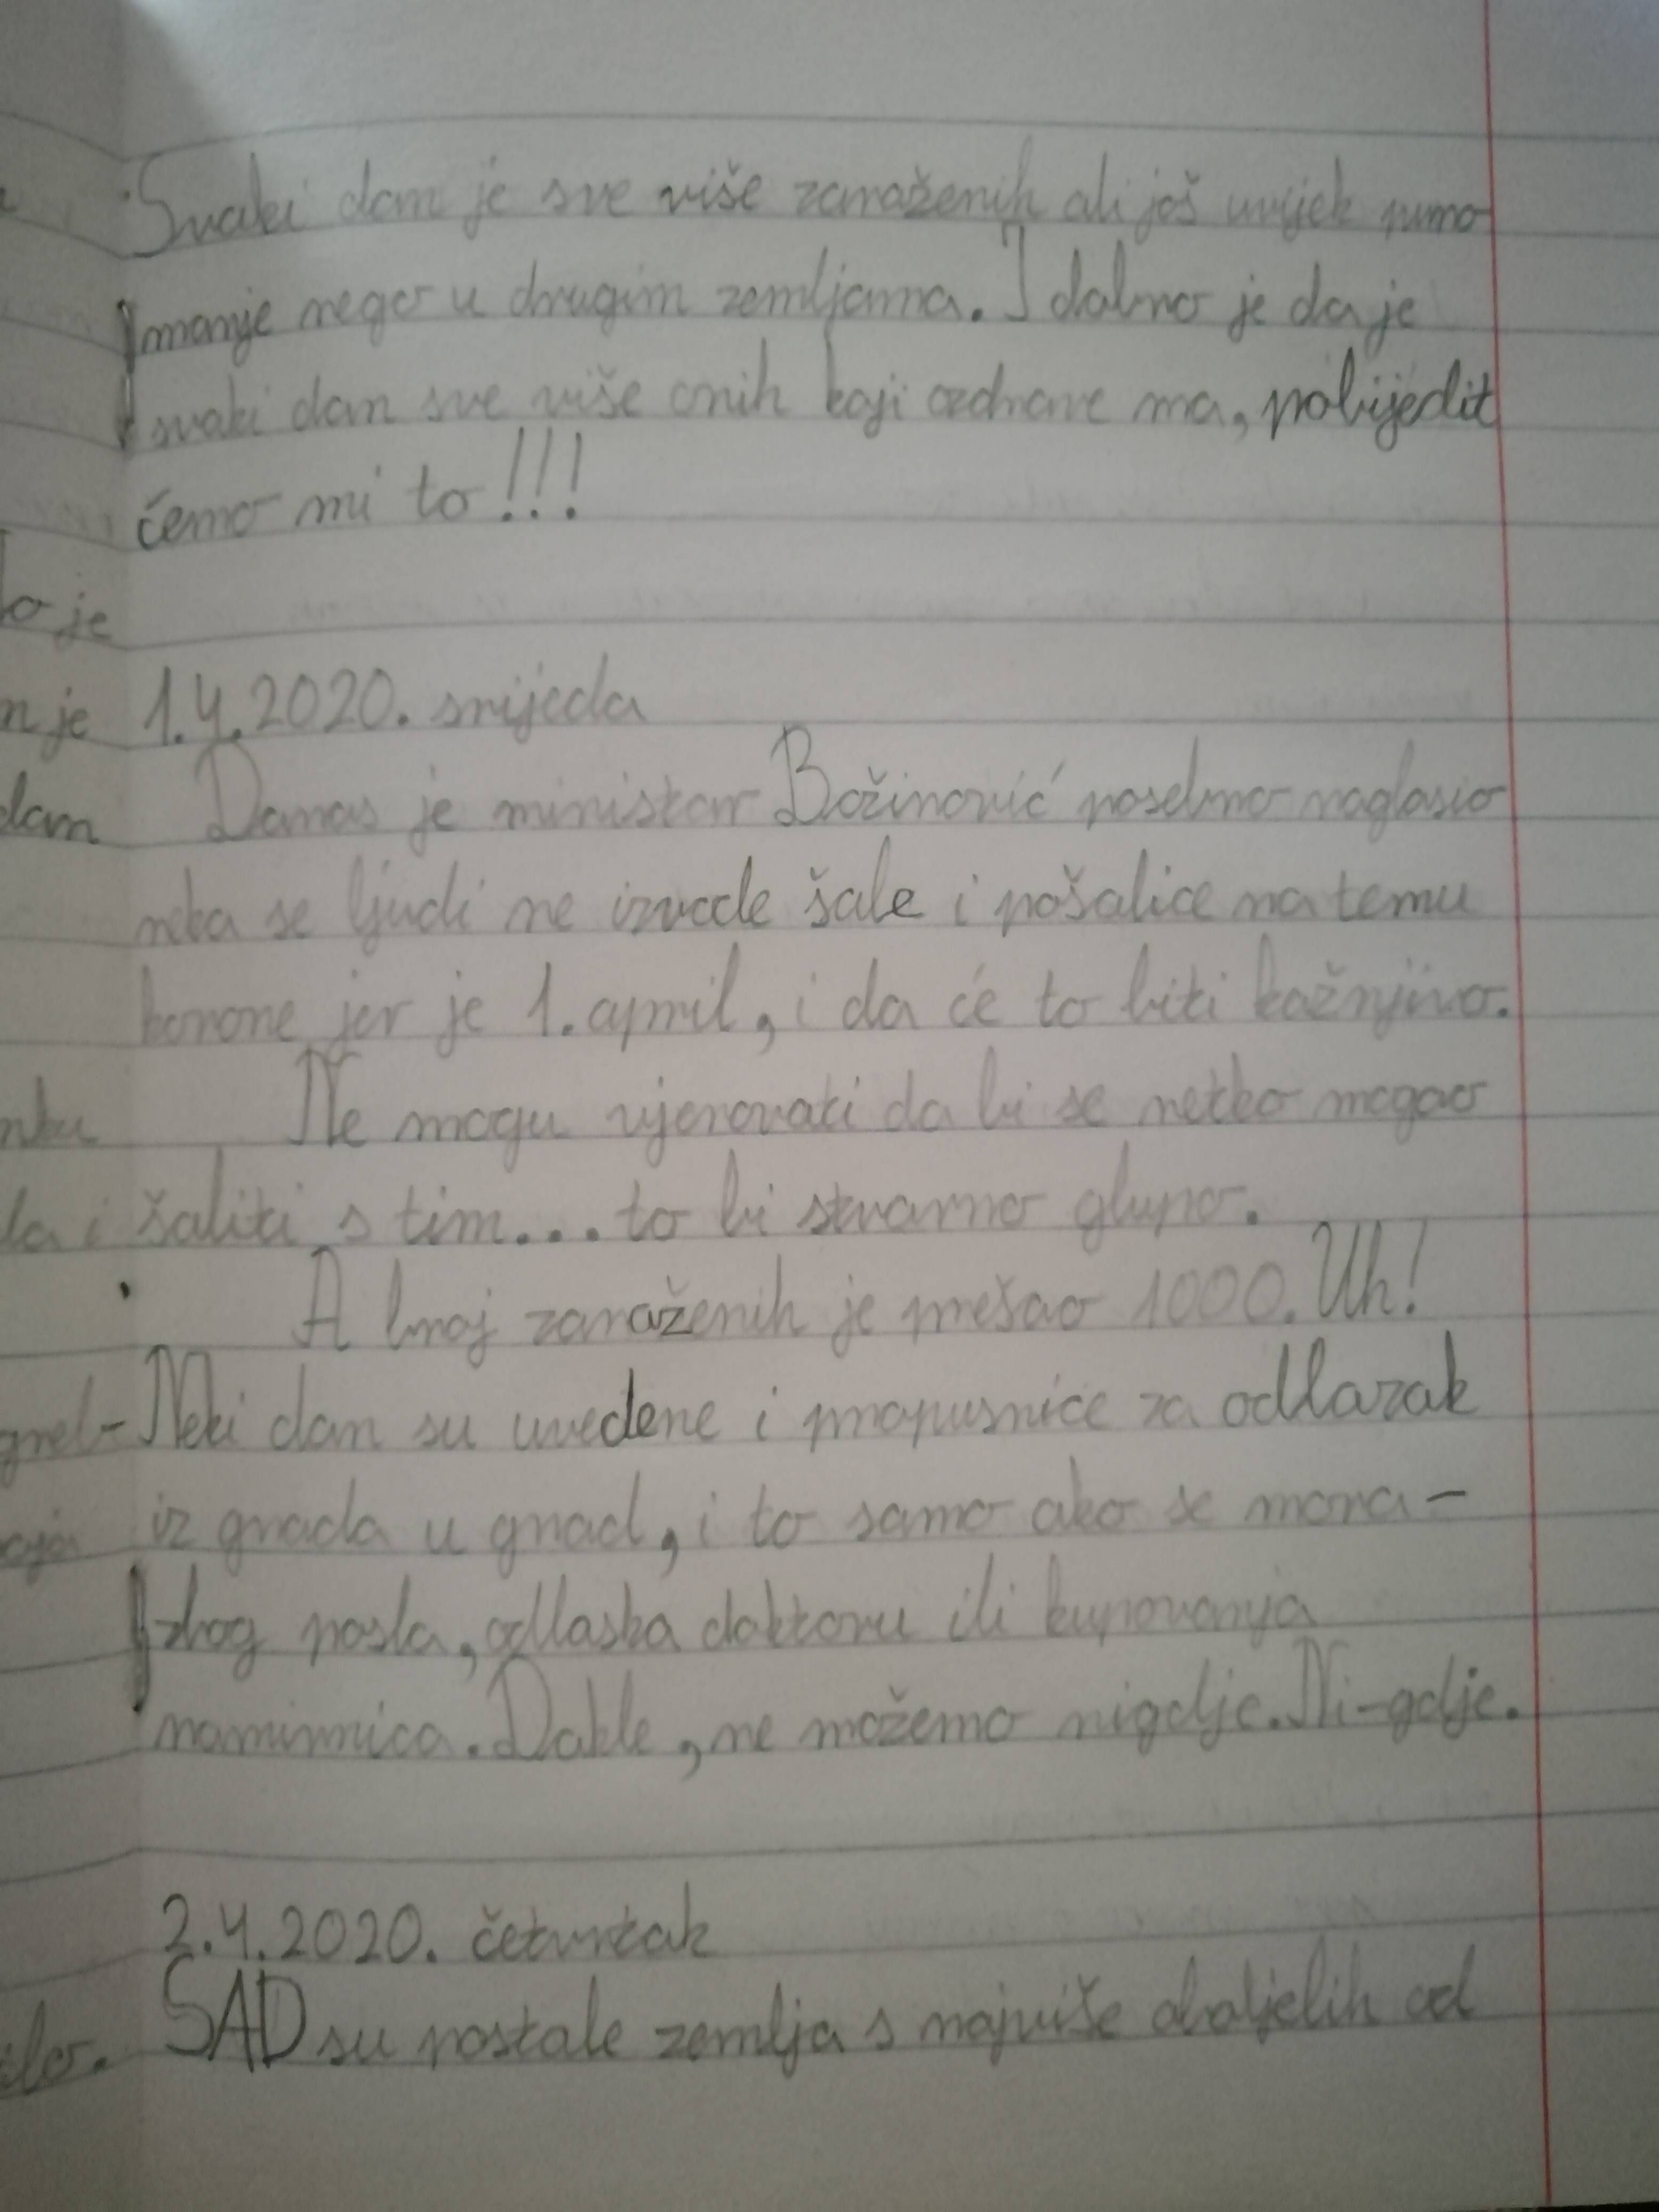 Svaki dan je sve više zaraženih ali još uvijek puno
manje nego u drugim zemljama. I dobro je da je
svaki dan sve više onih koji ozdrave ma, pobijedit
ćemo mi to!!!
1.4.2020. srijeda
Danas je ministar Božinović posebno naglasio
neka se ljudi ne izvode šale i pošalice na temu
korone jer je 1. april, i da će to biti kažnjivo.
Ne mogu vjerovati da bi se netko mogao
šaliti s tim... to bi stvarno glupo.
A broj zaraženih je prešao 1000. Uh!
Neki dan su uvedene i propusnice za odlazak
iz grada u grad, i to samo ako se mora-
zbog posla, odlaska doktoru ili kupovanja
namirnica. Dakle, ne možemo nigdje. Ni-gdje.
2.4.2020. četvrtak
SAD su postale zemlja s najviše oboljelih od